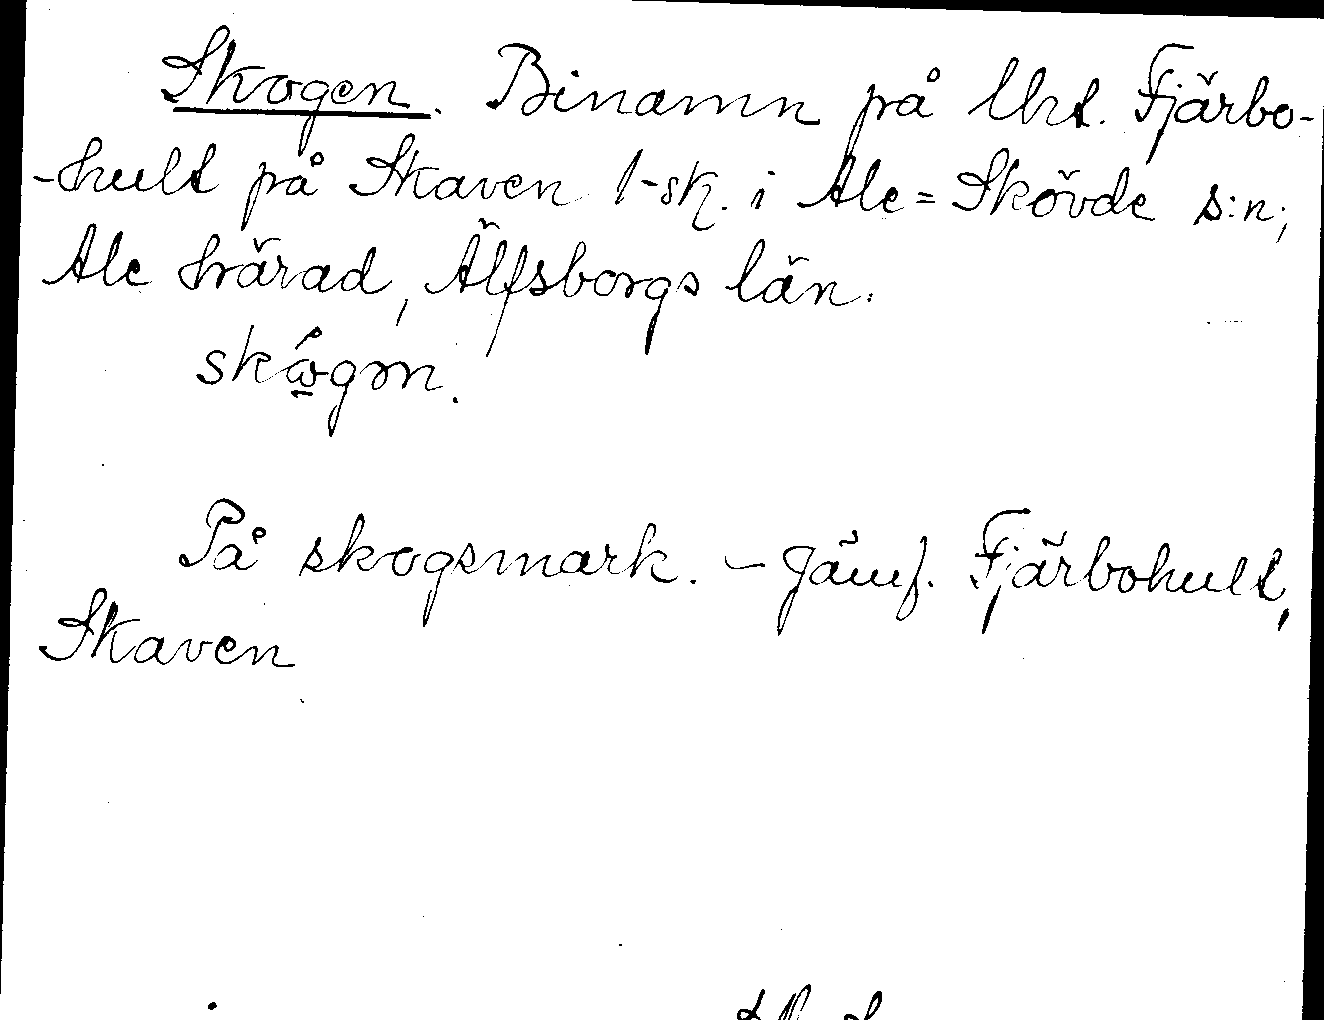 Skogen. Binamn på lht. Fjärbo-
-hult på Skaven 1-sk. i Ale=Skövde s:n,
Ale härad, Älfsborgs län.
På skogsmark. – Jämf. Fjärbohult,
Skaven